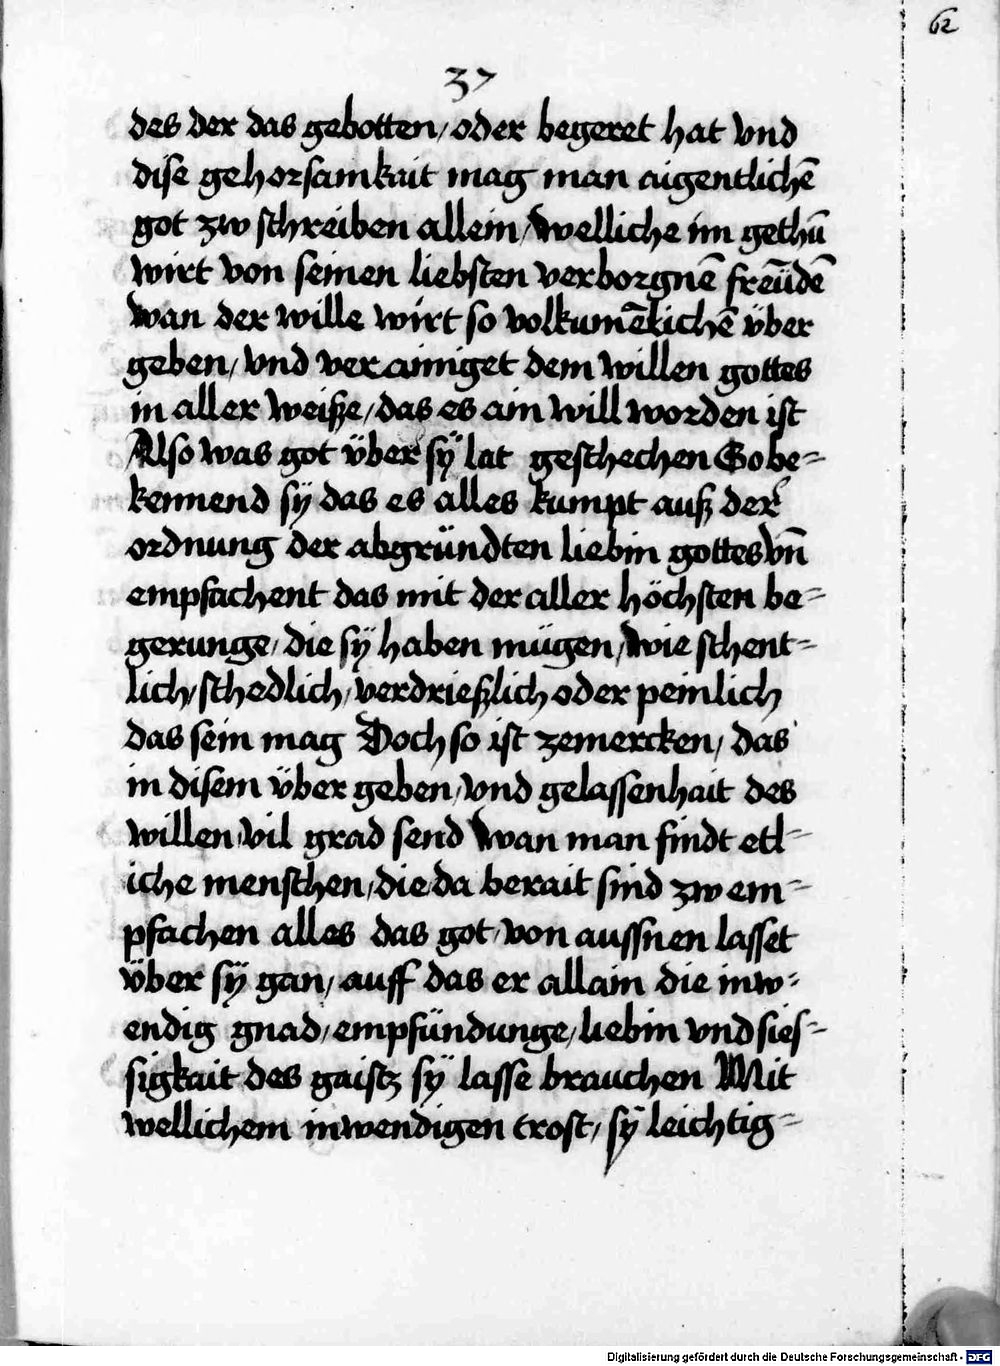 62
37
des der das gebotten / oder begeret hat vnd
dise gehorsamkait mag man aigentlichē
got zw schreiben allein / welliche im gethū
wirt von seinen liebsten verborgnē freüdē
wan der wille wirt so volkumēlichē über
geben / vnd verainiget dem willen gottes
in aller weiße / das es ain will worden ist
Also was got über sÿ lat geschechen So be-
kennend sÿ das es alles kumpt auß der
ordnung der abgründten liebin gottes vn̄
empfachent das mit der aller höchsten be-
gerunge / die sÿ haben mügen / wie schent-
lich / schedlich / verdrießlich oder peinlich
das sein mag Doch so ist zemercken / das
in disem über geben / vnd gelassenhait des
willen / vil grad send wan man findt etl-
iche menschen / die da berait sind zw em-
pfachen alles das got / von aussnen lasset
über sÿ gan / auff das er allain die inw-
endig gnad / empfündunge / liebin vnd sies-
sigkait des gaistz sÿ lasse brauchen Mit
wellichem inwendigen trost / sÿ leichtig-
Digitalisierung gefördert durch die Deutsche Forschungsgemeinschaft - DFG